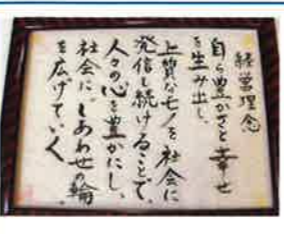 経営理念
自ら豊かさと幸せ
を生み出し、
上質なモノを社会に
発信し続けることで、
人々の心を豊かにし、
社会に、しあわせの輪
を広げていく